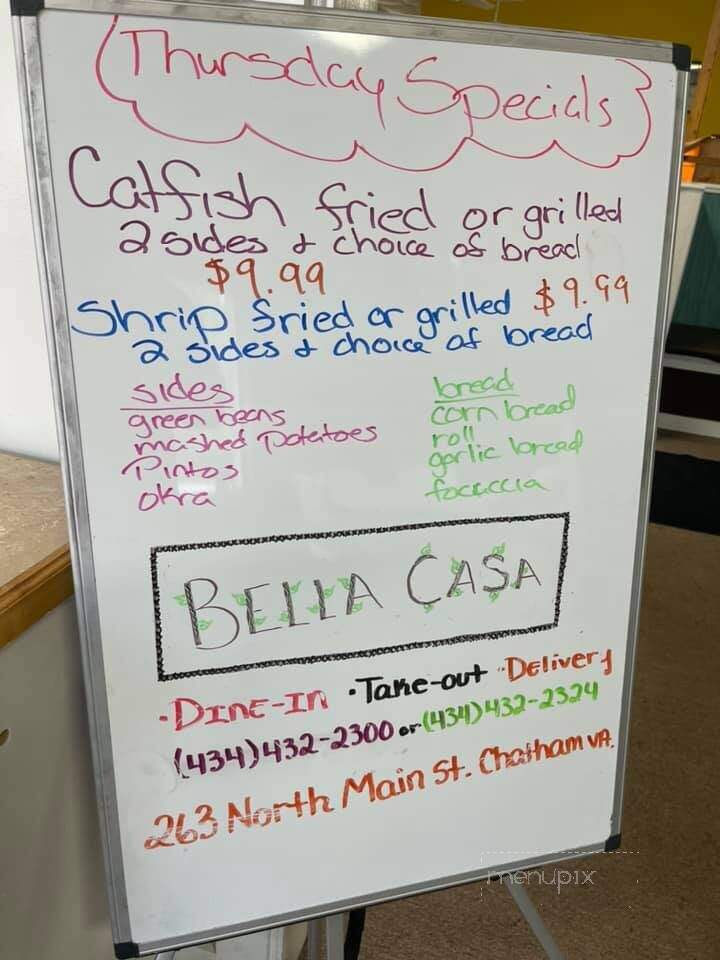 Thursday Specials
Catfish fried or grilled
2 sides & choice of bread
$9.99
Shrip fried or grilled $9.99
2 sides & choice of bread
sides
green beans
mashed potatoes
Pintos
okra
bread
corn bread
roll
garlic bread
focaccia
BELLA CASA
·DINE-IN ·Take-out ·Delivery
(434)432-2300 or (434)432-2324
263 North Main St. Chatham VA.
menupix